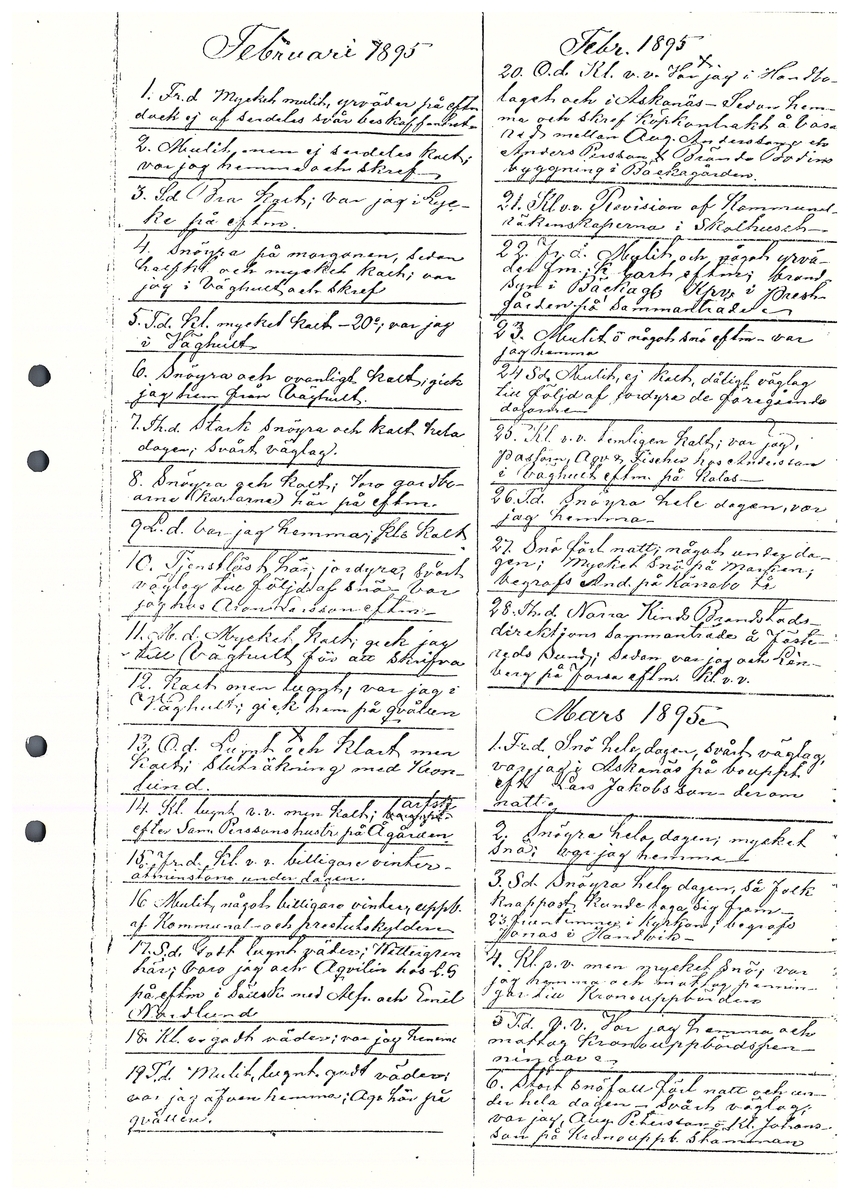 Februari 1895
1. Fr.d Mycket mulit, yrväder på eftm
dock ej af serdeles svår beskaffenhet
2. Mulit, men ej serdeles kalt;
var jag hemma och skref
3. Sd Bra kalt; var jag i Kyr-
ke på eftm.
4. Snöyra på morgonen, sedan
och mycket kalt; var
jag i Väghult och skref
5. Td. Kl. mycket kalt -20°; var jag
i Väghult
6. Snöyra och ovanligt kalt; gick
jag hem från Väghult.
7. Th.d. Stark snöyra och kalt hela
dagen; svårt väglag.
8. Snöyra och kalt; Voro gardbo-
arne (karlarne) här på eftm.
9 L.d. var jag hemma; Kl. kalt
10. här; jordyra, svårt
väglag till följd af snö. Var
jag hos Aron Larsson eftm-
11. M.d. Mycket kalt; gick jag
till Väghult för att skrifva
12. Kalt men lugnt; var jag i
Väghult; gick hem på qvällen
13. O.d. Lugnt och Klart men
kalt; Sluträkning med Kron-
lund.
14. Kl. lugnt v.v. men kalt; arfst
efter Sam. Perssons hustr på Ågården
15. Fr.d. Kl. v.v. billigare vinter-
åtminstone under dagen.
16 Mulit, något billigare vinter, uppb.
af Kommunal- och prestutskylder
17. S.d. Gott lugnt väder; Wettergren
här; voro jag och Aqvilin hos L.G
på eftm i med Alfr. och Emil
Nordlund
18. Kl. v. godt väder; var jag hemma
19 Td. Mulit, lugnt godt väder;
var jag äfven hemma; Aqv här på
qvällen.
Febr. 1895
20. O.d. Kl. v.v. Var jag i Handbo-
laget och i Askanäs- Sedan hem-
ma och skref Köpkontrakt å
mellan Aug. Andersson etc
Anders Persson Brända
byggning i Backagården.
21. Kl. v.v. Revision af Kommunal-
räkenskaperna i Skolhuset-
22. Fr.d. Mulit, och något yrvä-
der fm; Klart eftm; brand
syn i Backag. Kpv. i Prest-
gården på Sammanträde
23. Mulit o något snö eftm- var
jag hemma
24 Sd. Mulit, ej kalt, dåligt väglag
till följd af jordyra de föregående
dagarne
25. Kl. v.v. temligen kalt; var jag,
pastorn, Aqv. & Fischer hos Andersson
i Väghult eftm. på Kalas-
26. Td. Snöyra hele dagen, var
jag hemma-
27. Snö förl. natt; något under da-
gen; Mycket snö på marken;
begrafs And. på Kånabo
28. Th.d. Norra Kinds Brandstods-
direktions Sammanträde å
Sund; sedan var jag och Len-
berg på Forsa eftm. Kl. v.v.
Mars 1895
1. Fr.d. Snö hela dagen, svårt väglag,
var jag i Askanäs på bouppt.
eft. Lars Jakobsson- der om
natt
2. Snöyra hela dagen; mycket
snö; var jag hemma-
3. Sd. Snöyra hela dagen, så folk
knappast kunde taga sig fram-
23 fruntimmer i Kyrkan; begrafs
Jonas i Handvik-
4. Kl. v.v. men mycket snö; var
jag hemma och mottog pennin-
gar till Kronouppbörden
5 Td. v.v. Var jag hemma och
mottog Kronouppbördspen-
ningar
6. Stort snöfall förl. natt och un-
der hela dagen- Svårt väglag;
var jag, Aug Petersson o Kl. Johans-
son på Kronouppb. stämman